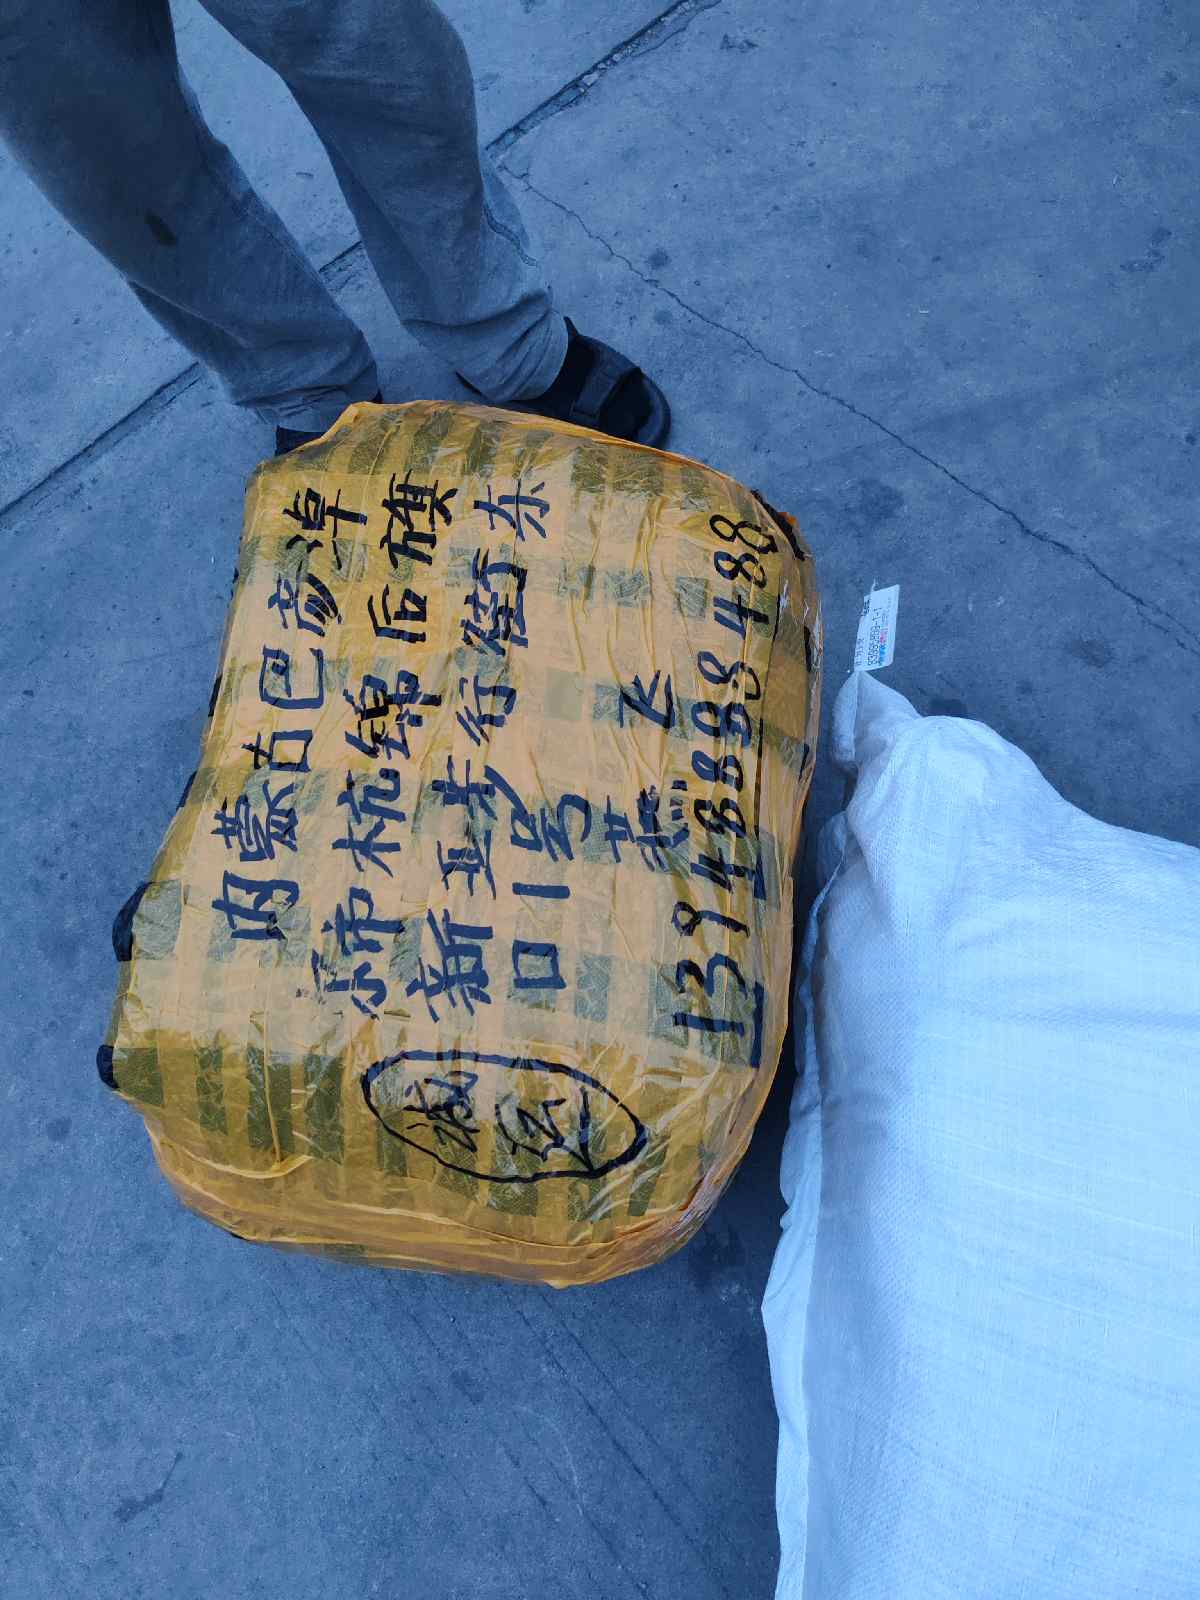 内蒙古巴彦淖
尔市杭锦后旗
新亚步行街东
口1号
燕飞
13948888488